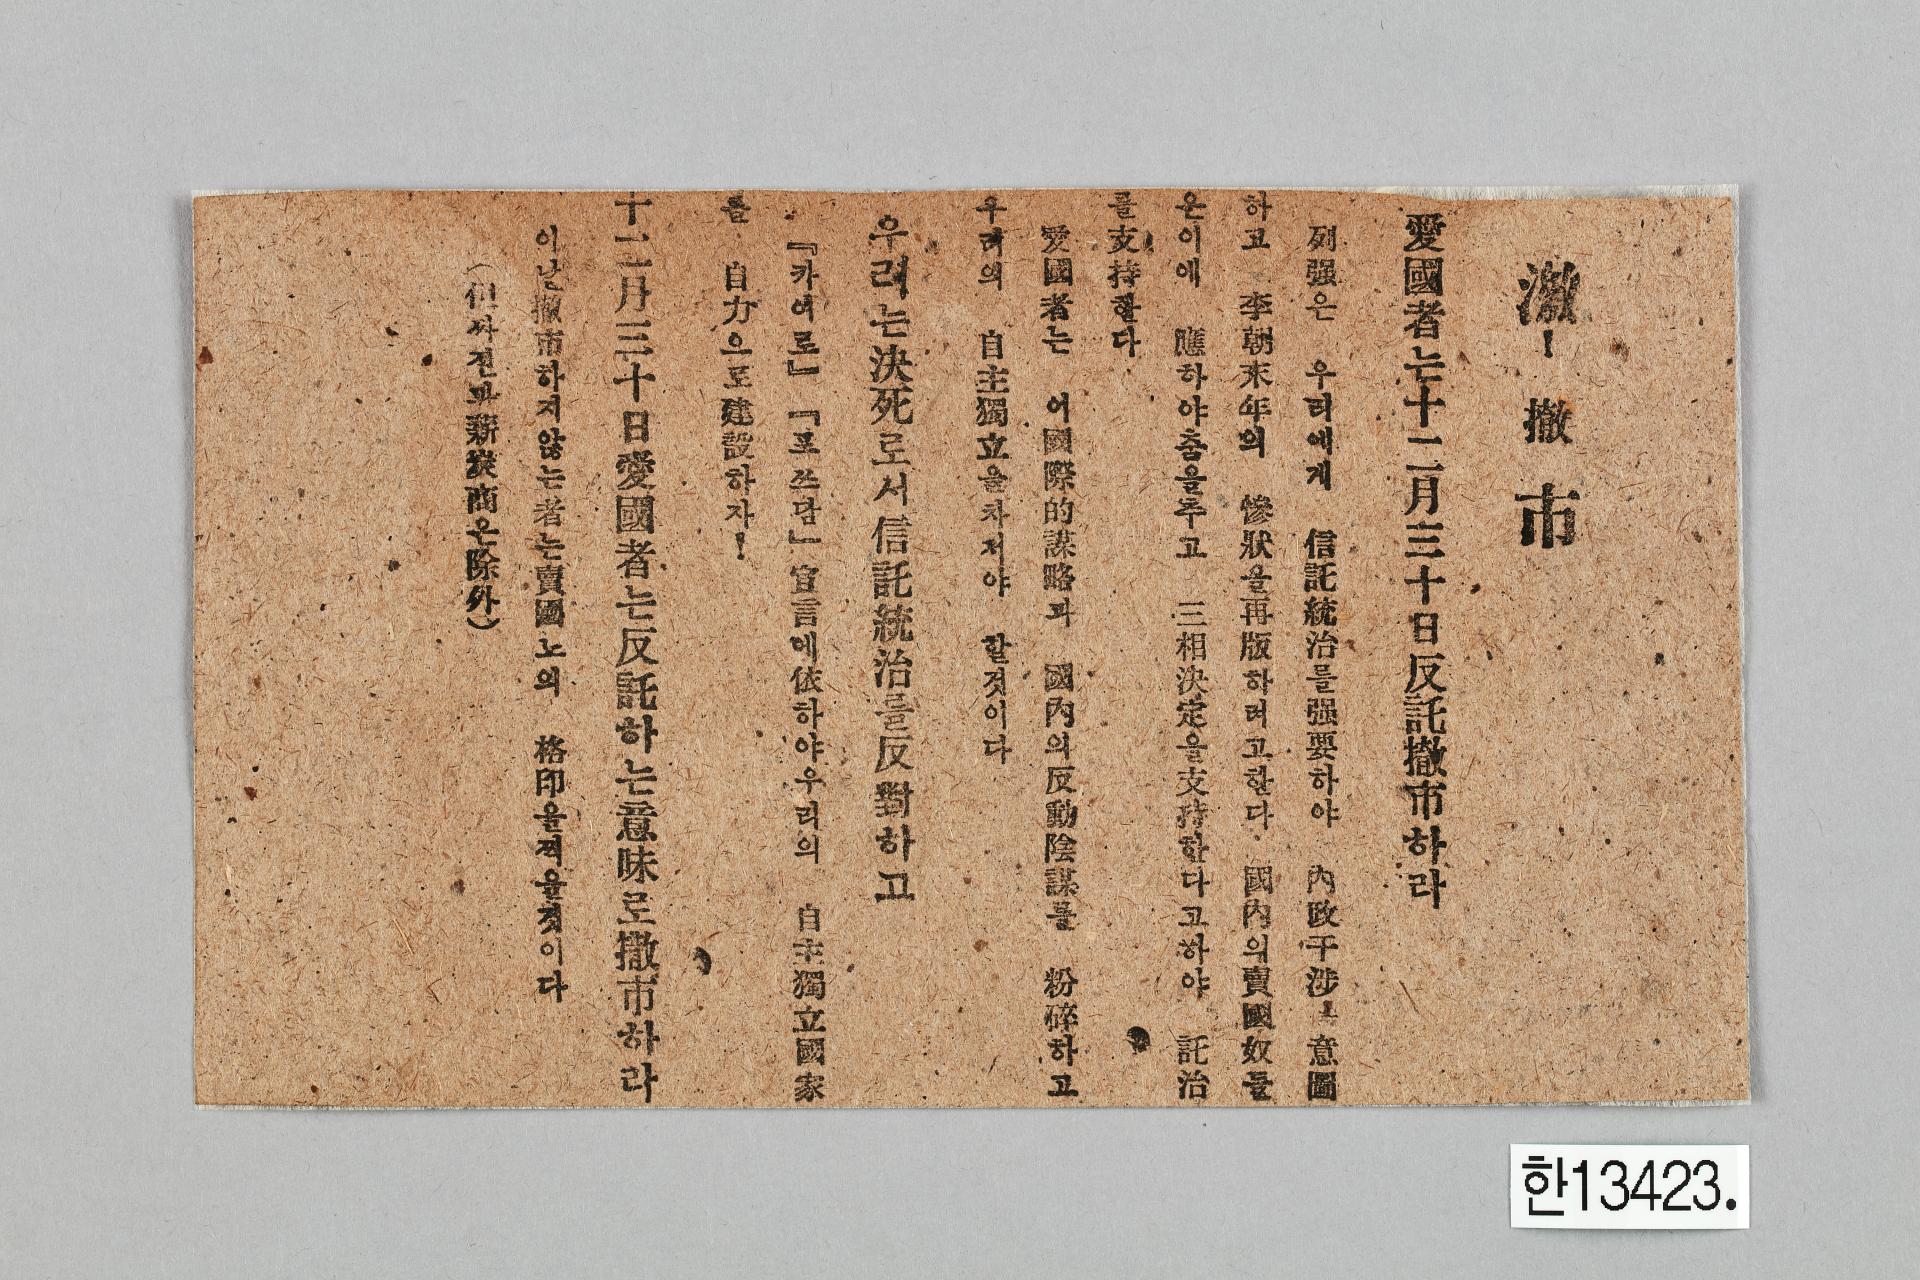 激! 撤市
愛國者는十二月三十日反託撤市하라
列强은 우리에게 信託統治를强要하야 內政干涉 意圖
하고 李朝末年의 慘狀을再版하려고한다 國內의賣國奴들
은이에 應하야춤을추고 三相決定을支持한다고하야 託治
를支持한다
愛國者는 이國際的謀略과 國內의反動陰謀를 粉碎하고
우리의 自主獨立을차저야 할것이다
우려는決死로서信託統治를反對하고
『카이로』『포쓰담』宣言에依하야우리의 自主獨立國家
를 自力으로建設하자!
十二月三十日愛國者는反託하는意味로撤市하라
이날撤市하지않는者는賣國노의 格印을찍을것이다
(但싸전과薪炭商은除外)
한13423.